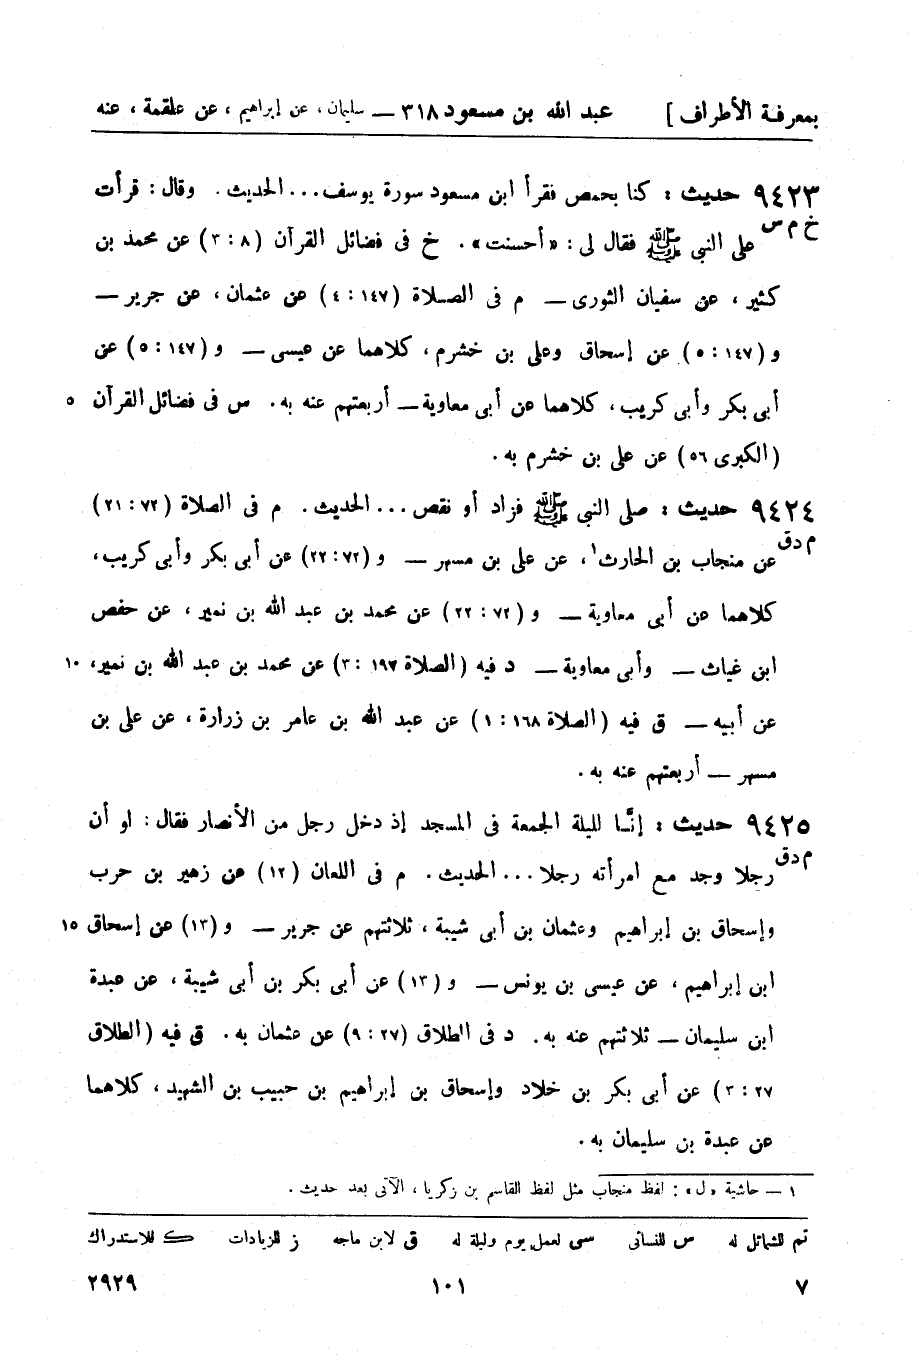 بمعرفة الأطراف] عبد الله بن مسعود ٣١٨ — سليمان، عن إبراهيم، عن علقمة، عنه
٩٤٢٣ حديث: كنا بحمص فقرأ ابن مسعود سورة يوسف...الحديث. وقال: قرأت
خ م س على النبي ﷺ فقال لى: «أحسنت». خ فى فضائل القرآن (٨: ٣) عن محمد بن
كثير، عن سفيان الثورى — م فى الصلاة (١٤٧: ٤) عن عثمان، عن جرير —
و (١٤٧: ٥) عن إسحاق وعلى بن خشرم، كلاهما عن عيسى — و (١٤٧: ٥) عن
أبى بكر وأبى كريب، كلاهما عن أبى معاوية — أربعتهم عنه به. س فى فضائل القرآن ٥
(الكبرى ٥٦) عن على بن خشرم به.
٩٤٢٤ حديث: صلى النبى ﷺ فزاد أو نقص...الحديث. م فى الصلاة (٧٢: ٢١)
م د ق عن منجاب بن الحارث١، عن على بن مسهر — و (٧٢: ٢٢) عن أبى بكر وأبى كريب،
كلاهما عن أبى معاوية — و (٧٢: ٢٢) عن محمد بن عبد الله بن نمير، عن حفص
ابن غياث — وأبى معاوية — د فيه (الصلاة ١٩٧: ٣) عن محمد بن عبد الله بن نمير، ١٠
عن أبيه — ق فيه (الصلاة ١٦٨: ١) عن عبد الله بن عامر بن زرارة، عن على بن
مسهر — أربعتهم عنه به.
٩٤٢٥ حديث: إنَّا لليلة الجمعة فى المسجد إذ دخل رجل من الأنصار فقال: لو أن
م د ق رجلا وجد مع امرأته رجلا...الحديث. م فى اللعان (١٢) عن زهير بن حرب
وإسحاق بن إبراهيم وعثمان بن أبى شيبة، ثلاثتهم عن جرير — و (١٣) عن إسحاق ١٥
ابن إبراهيم، عن عيسى بن يونس — و (١٣) عن أبى بكر بن أبى شيبة، عن عبدة
ابن سليمان — ثلاثتهم عنه به. د فى الطلاق (٢٧: ٩) عن عثمان به. ق فيه (الطلاق
٢٧: ٣) عن أبى بكر بن خلاد وإسحاق بن إبراهيم بن حبيب بن الشهيد، كلاهما
عن عبدة بن سليمان به.
١ — حاشية «ل»: لفظ منجاب مثل لفظ القاسم بن زكريا، الآتى بعد حديث.
تم للشمائل له س للنسائى سى لعمل يوم وليلة له ق لابن ماجه ز للزيادات ك للاستدراك
٧ ١٠١ ٢٩٢٩